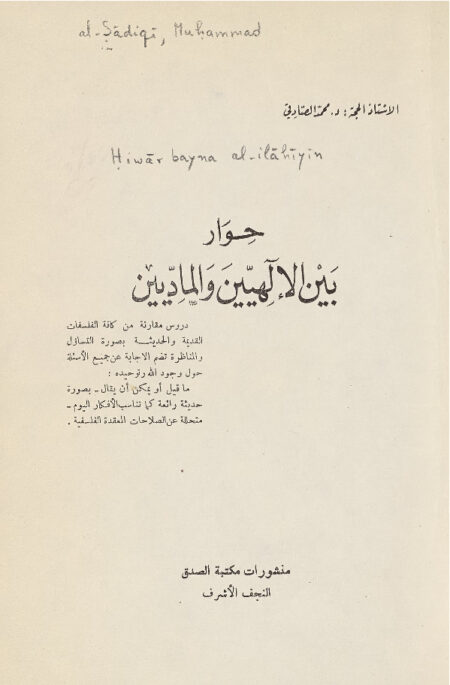 al-Ṣādiqī, Muḥammad
الاستاذ الحجة : د. محمد الصّادقي
Ḥiwār bayna al-ilāhīyīn
حِوَار
بَيْنَ الإلٰهيّينَ وَالمادِّيين
دروس مقارنة من كافة الفلسفات
القديمة والحديثــة بصورة التساؤل
والمناظرة تضم الاجابة عن جميع الأسئلة
حول وجود الله وتوحيده :
ما قيل أو يمكن أن يقال ــ بصورة
حديثة رائعة كما تناسب الأفكار اليوم ــ
متحللة عن الصلاحات المعقدة الفلسفية .
منشورات مكتبة الصدق
النجف الأشرف